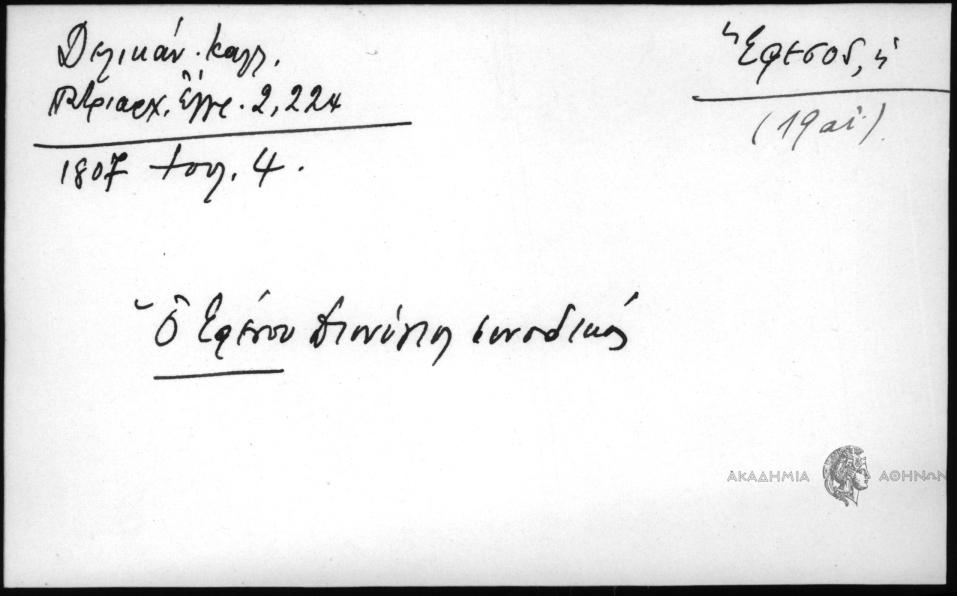 Δελικάν. Καλλ.
Πατριαρχ. Έγγρ. 2, 224
1807 Ιουλ. 4.
Ἔφεσος, ἡ
(19 αἰ.)
Ὁ Ἐφέσου Διονύσιος συνοδικός
ΑΚΑΔΗΜΙΑ ΑΘΗΝΩΝ